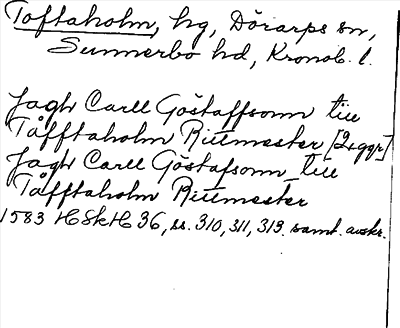 Toftaholm, hg, Dörarps sn,
Sunnerbo hd, Kronob. l.
Jagh Carll Göstaffsonn till
Tåfftaholm Rittmester [2 ggr]
Jagh Carll Göstafsonn till
Tåfftaholm Rittmester
1583 HSkH 36, ss. 310, 311, 313 samt. avskr.